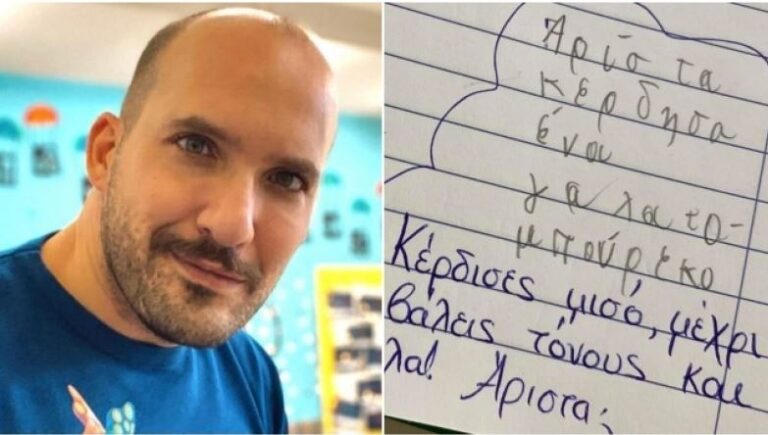 Αρίστα
κέρδησα
ένα
γαλατο-
μπούρεκο
Κέρδισες μισό, μέχρι
βάλεις τόνους και
λα! Άριστα;